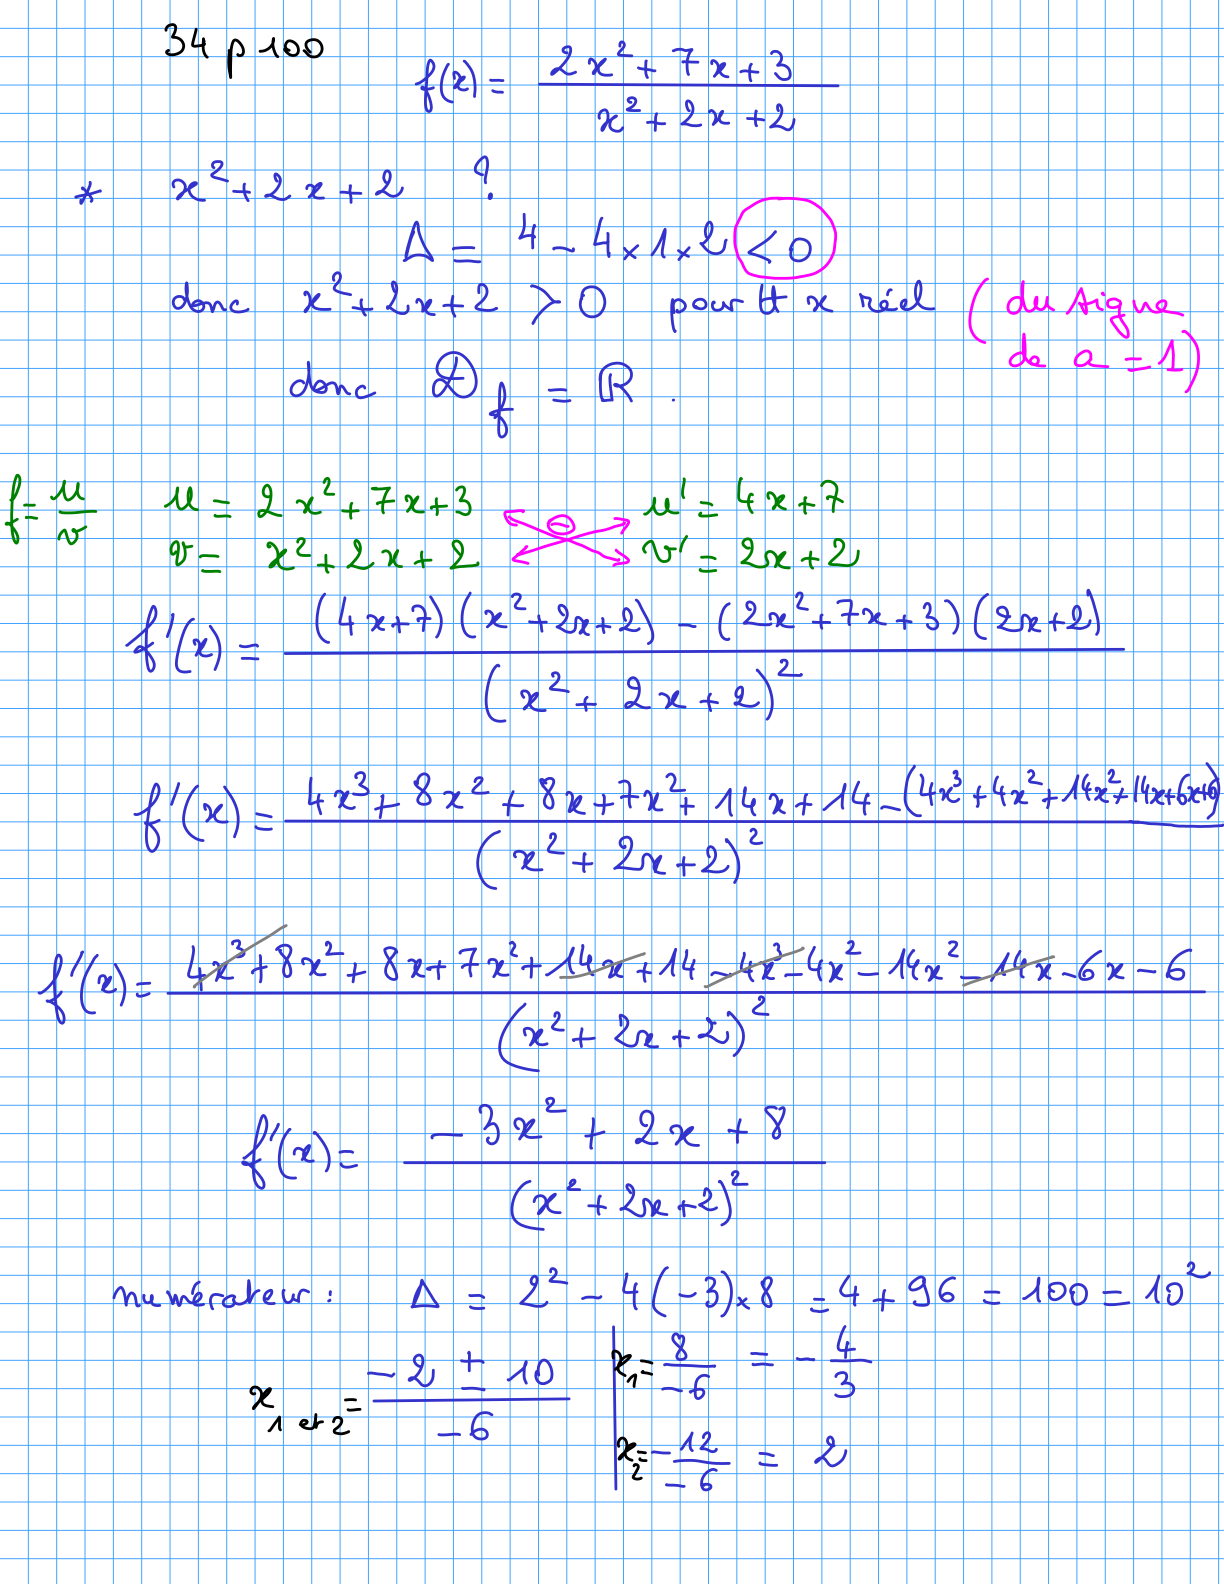 34 p 100
f(x) = (2x² + 7x + 3) / (x² + 2x + 2)
* x² + 2x + 2 ?
Δ = 4 - 4×1×2 < 0
donc x² + 2x + 2 > 0 pour tt x réel (du signe
de a = 1)
donc D_f = ℝ.
f = u/v u = 2x² + 7x + 3 ⊖ u' = 4x + 7
v = x² + 2x + 2 v' = 2x + 2
f'(x) = ((4x+7)(x²+2x+2) - (2x²+7x+3)(2x+2)) / (x² + 2x + 2)²
f'(x) = (4x³ + 8x² + 8x + 7x² + 14x + 14 - (4x³ + 4x² + 14x² + 14x + 6x + 6)) / (x² + 2x + 2)²
f'(x) = (4x³ + 8x² + 8x + 7x² + 14x + 14 - 4x³ - 4x² - 14x² - 14x - 6x - 6) / (x² + 2x + 2)²
f'(x) = (-3x² + 2x + 8) / (x² + 2x + 2)²
numérateur : Δ = 2² - 4(-3)×8 = 4 + 96 = 100 = 10²
x_1 et 2 = (-2 ± 10) / -6
x_1 = 8/-6 = -4/3
x_2 = -12/-6 = 2